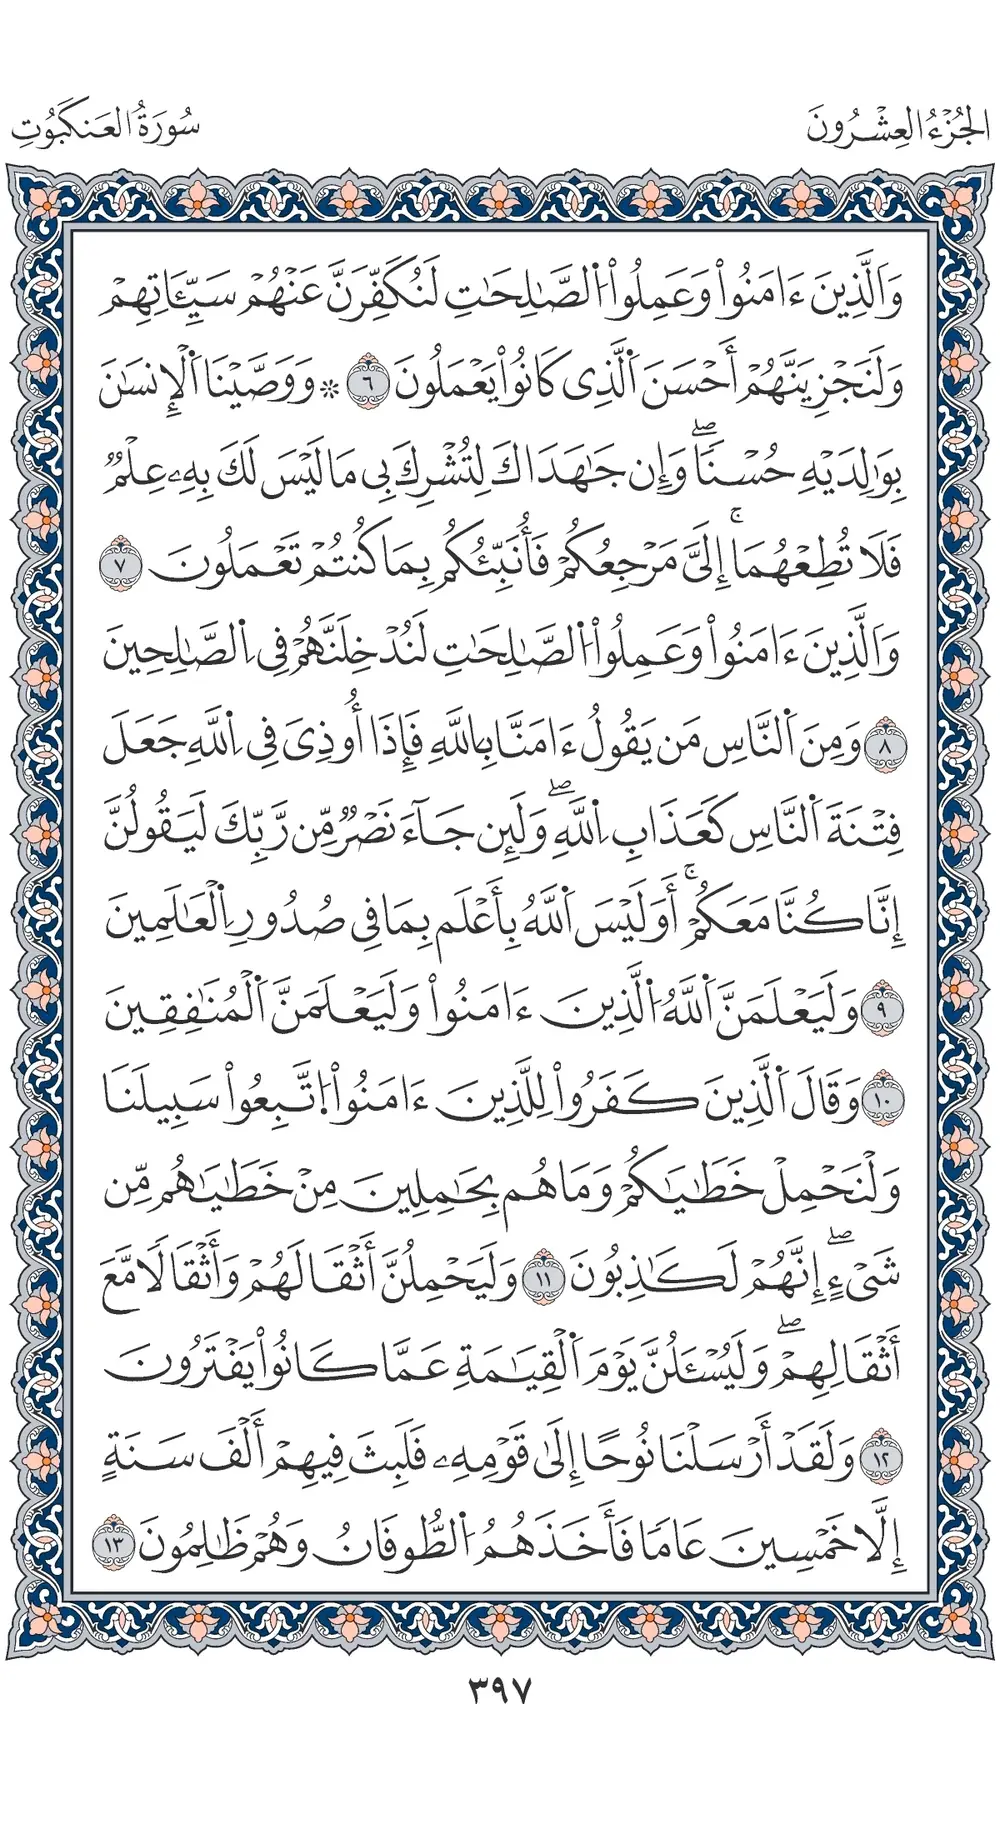 الجُزْءُ العِشْرُونَ
سُورَةُ العَنكَبُوتِ
وَاَلَّذِينَ ءَامَنُواْ وَعَمِلُواْ اُلصَّٰلِحَٰتِ لَنُكَفِّرَنَّ عَنْهُمْ سَيِّـَٔاتِهِمْ
وَلَنَجْزِيَنَّهُمْ أَحْسَنَ اَلَّذِى كَانُواْ يَعْمَلُونَ ٦ ۞ وَوَصَّيْنَا اَلْإِنسَٰنَ
بِوَٰلِدَيْهِ حُسْنٗاۖ وَإِن جَٰهَدَاكَ لِتُشْرِكَ بِى مَا لَيْسَ لَكَ بِهِۦ عِلْمٞ
فَلَا تُطِعْهُمَاۚ إِلَىَّ مَرْجِعُكُمْ فَأُنَبِّئُكُم بِمَا كُنتُمْ تَعْمَلُونَ ٧
وَاَلَّذِينَ ءَامَنُواْ وَعَمِلُواْ اُلصَّٰلِحَٰتِ لَنُدْخِلَنَّهُمْ فِى اِلصَّٰلِحِينَ
٨ وَمِنَ اَلنَّاسِ مَن يَقُولُ ءَامَنَّا بِاللَّهِ فَإِذَا أُوذِىَ فِى اِللَّهِ جَعَلَ
فِتْنَةَ اَلنَّاسِ كَعَذَابِ اِللَّهِۖ وَلَئِن جَآءَ نَصْرٞ مِّن رَّبِّكَ لَيَقُولُنَّ
إِنَّا كُنَّا مَعَكُمْۚ أَوَلَيْسَ اَللَّهُ بِأَعْلَم بِمَا فِى صُدُورِ اِلْعَٰلَمِينَ
٩ وَلَيَعْلَمَنَّ اَللَّهُ اُلَّذِينَ ءَامَنُواْ وَلَيَعْلَمَنَّ اَلْمُنَٰفِقِينَ
١٠ وَقَالَ اَلَّذِينَ كَفَرُواْ لِلَّذِينَ ءَامَنُواْ اُتَّبِعُواْ سَبِيلَنَا
وَلْنَحْمِلْ خَطَٰيَٰكُمْ وَمَا هُم بِحَٰمِلِينَ مِنْ خَطَٰيَٰهُم مِّن
شَىْءٍۖ إِنَّهُمْ لَكَٰذِبُونَ ١١ وَلَيَحْمِلُنَّ أَثْقَالَهُمْ وَأَثْقَالٗا مَّعَ
أَثْقَالِهِمْۖ وَلَيُسْـَٔلُنَّ يَوْمَ اَلْقِيَٰمَةِ عَمَّا كَانُواْ يَفْتَرُونَ
١٢ وَلَقَدْ أَرْسَلْنَا نُوحًا إِلَىٰ قَوْمِهِۦ فَلَبِثَ فِيهِمْ أَلْفَ سَنَةٍ
إِلَّا خَمْسِينَ عَامٗا فَأَخَذَهُمُ اُلطُّوفَانُ وَهُمْ ظَٰلِمُونَ ١٣
٣٩٧